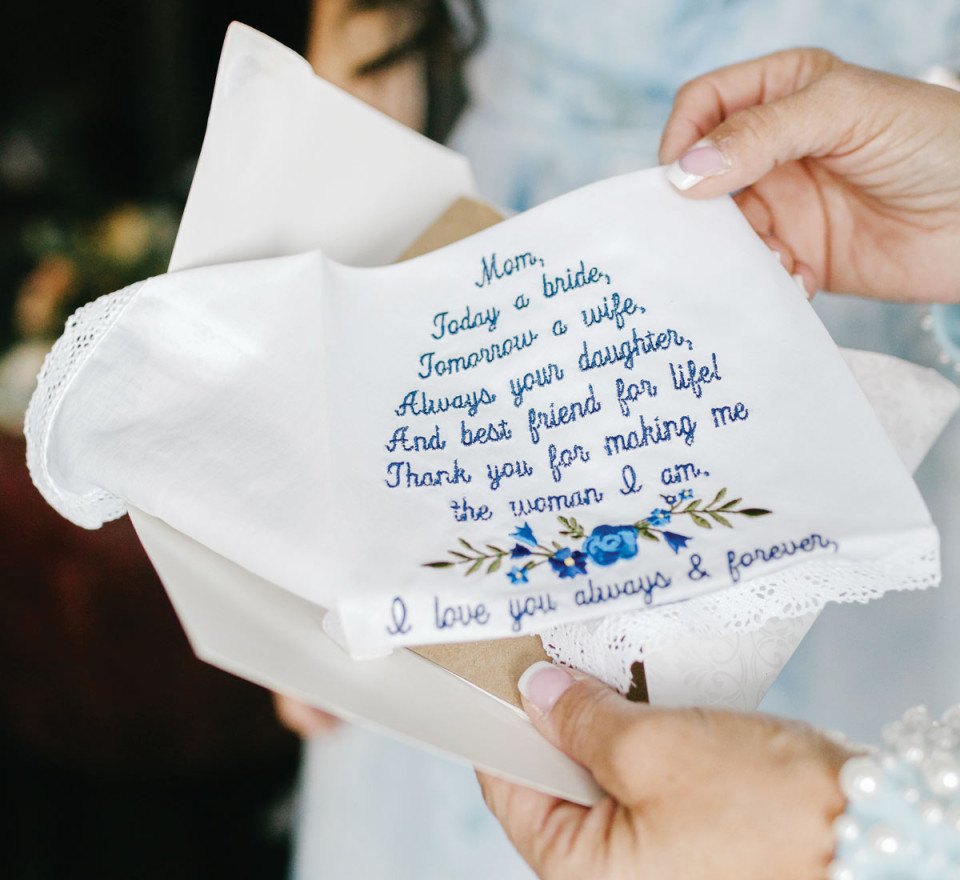 Mom,
Today a bride,
Tomorrow a wife,
Always your daughter,
And best friend for life!
Thank you for making me
the woman I am.
I love you always & forever,